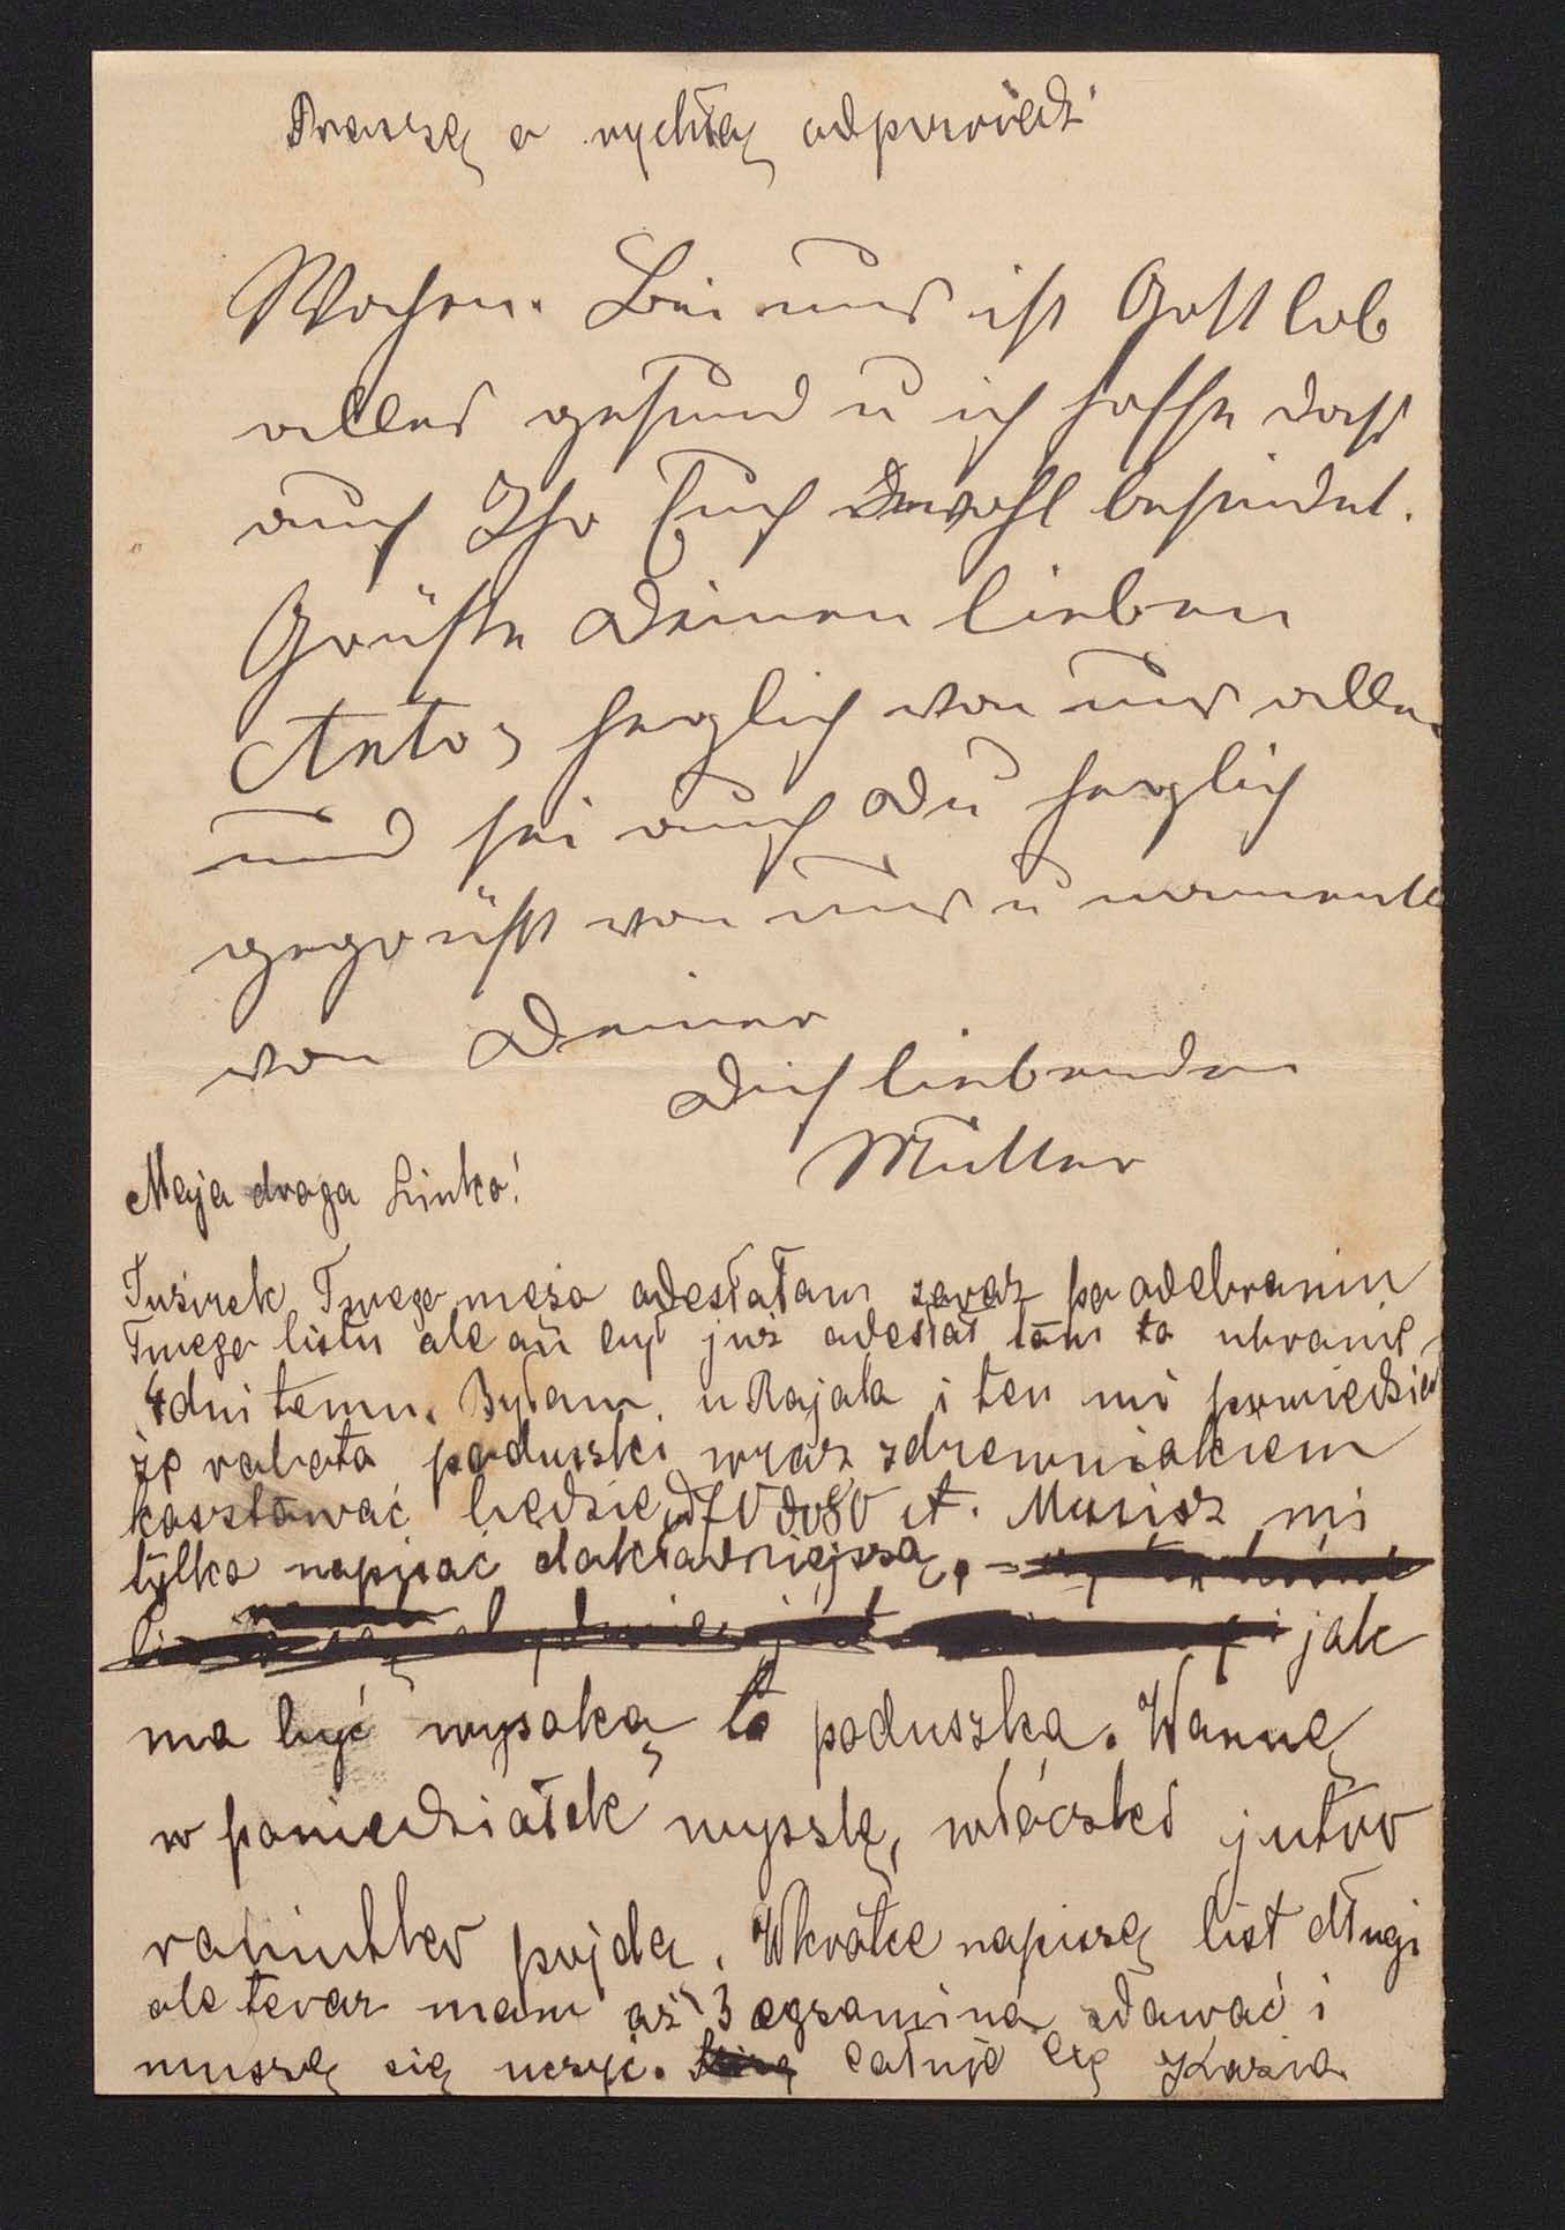 Proszę o rychłą odpowiedź
Wochen. Bei uns ist Gott lob
alles gesund u ich hoffe dass
auch Ihr Euch wohl befindet.
Grüße Deinen lieben
Antos herzlich von uns allen
und sei auch Du herzlich
gegrüßt von uns u
von Deiner
Dich liebenden
Mutter
Moja droga Linko!
Tużurek Twego męża odesłałam zaraz po odebraniu
Twego listu ale on był już odesłał tam to ubranie
4 dni temu. Byłam u Rajala i ten mi powiedział
że robota poduszki wraz z drewniakiem
kosztować będzie 70 do 80 ct. Musisz mi
tylko napisać dokładniejszą,
i jak
ma być wysoką ta poduszka. Wannę
w poniedziałek wyszlę, włóczki jutro
raniutko pójdą. Wkrótce napiszę list długi
ale teraz mam aż 3 egzamina zdawać i
muszę się uczyć. całuję Cię Kazia